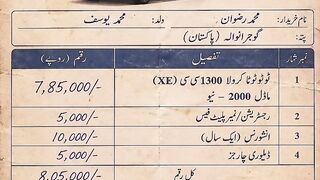 نام خریدار: محمد رضوان ولد: محمد یوسف
پتہ: گوجرانوالہ (پاکستان)
نمبر شمار تفصیل رقم (روپے)
1 ٹوئوٹوٹا کرولا 1300 سی سی (XE) 7,85,000/-
ماڈل 2000 - نیو
2 رجسٹریشن/نمبر پلیٹ فیس 5,000/-
3 انشورنس (ایک سال) 10,000/-
4 ڈلیوری چارجز 5,000/-
کل رقم 8,05,000/-